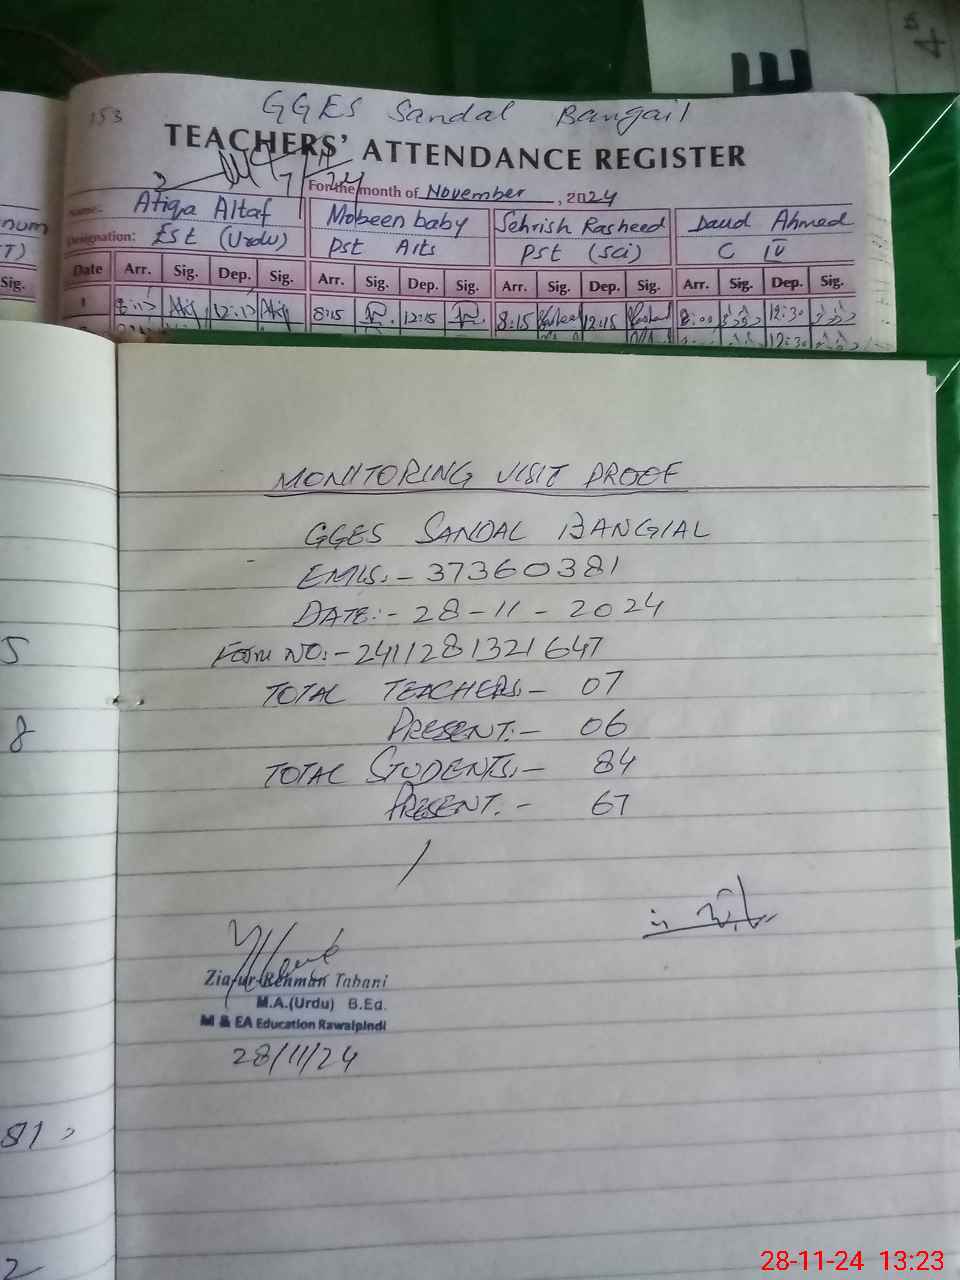 E
4
153
GGES Sandal Bangail
TEACHERS' ATTENDANCE REGISTER
For the month of November, 2024
Name: Atiqa Altaf Mobeen baby Sehrish Rasheed Daud Ahmed
Designation: Est (Urdu) Pst Arts Pst (Sci) C IV
Date Arr. Sig. Dep. Sig. Arr. Sig. Dep. Sig. Arr. Sig. Dep. Sig. Arr. Sig. Dep. Sig.
1 8:15 12:15 8:15 12:15 8:15 12:15 8:00 12:30
12:30
num
T)
Sig.
MONITORING VISIT PROOF
GGES SANDAL BANGIAL
EMIS:- 37360381
DATE:- 28-11-2024
Form NO:- 2411281321647
TOTAL TEACHERS:- 07
PRESENT:- 06
TOTAL STUDENTS:- 84
PRESENT:- 67
Zia-ur-Rehman Tabani
M.A.(Urdu) B.Ed.
M & EA Education Rawalpindi
28/11/24
5
8
81
2
28-11-24 13:23